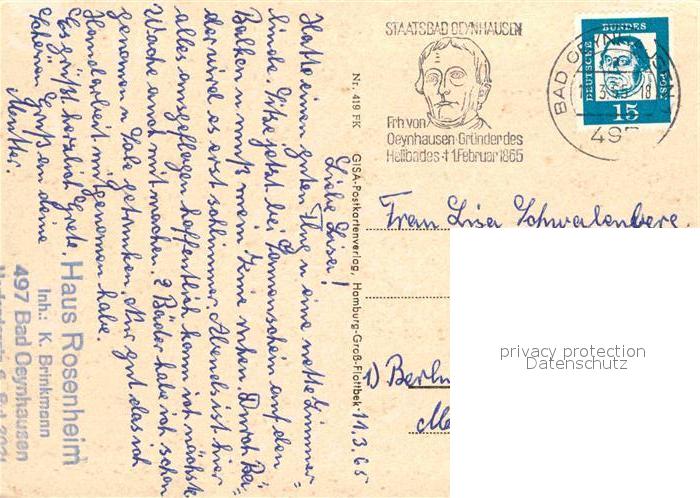 STAATSBAD OEYNHAUSEN
Frh von
Oeynhausen-Gründer des
Heilbades † 1. Februar 1865
BAD OEYNHAUSEN
18
497
DEUTSCHE BUNDESPOST
15
Nr. 419 FK GISA-Postkartenverlag, Hamburg-Groß-Flottbek
11.3.65
Liebe Lisa!
Hatte einen guten Flug u eine nette Zimmer-
linde. Sitze jetzt bei Sonnenschein auf den
Balkon, muß mein Knie ruhen. Durch Bä-
der wird es erst schlimmer. Abends ist hier
alles ausgeflogen hoffentlich kann ich nächste
Woche auch mitmachen. 2 Bäder habe ich schon
genommen u Sole getrunken. Nur gut das ich
Handarbeit mitgenommen habe.
Es grüßt herzlich Grete.
Schönen Gruß an deine
Mutter.
Haus Rosenheim
Inh.: K. Brinkmann
497 Bad Oeynhausen
Frau Lisa Schwalenberg
1) Berlin
privacy protection
Datenschutz